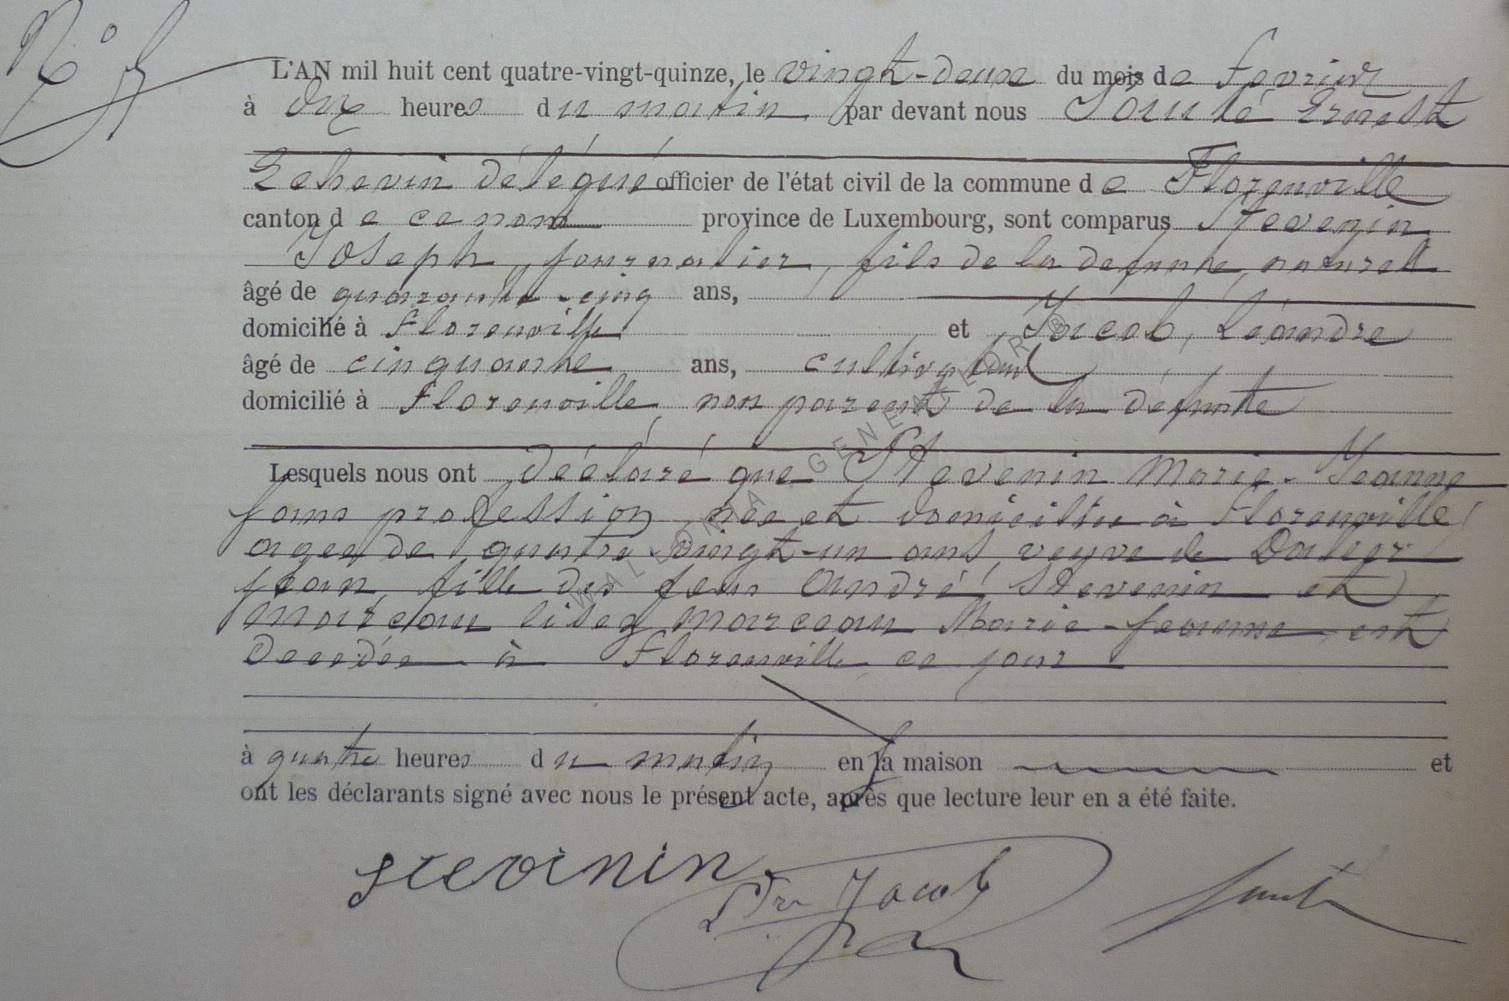 N° 5
L'AN mil huit cent quatre-vingt-quinze, le vingt-deux du mois de fevrier
à dix heures du matin par devant nous Ernest
Echevin délégué officier de l'état civil de la commune de Florenville
canton de ce nom province de Luxembourg, sont comparus Stevenin
Joseph, journalier, fils de la defunte, naturel
âgé de quarante-cinq ans,
domicilié à Florenville et Jacob, Léandre
âgé de cinquante ans, cultivateur
domicilié à Florenville non parent de la défunte
Lesquels nous ont déclaré que Stevenin Marie-Jeanne
sans profession née et domiciliée à Florenville,
agee de quatre-vingt-un ans, veuve de
Jean, fille des feus André Stevenin et
Marceau lisez Marceau Marie-Jeanne est
Decedée à Florenville ce jour
à quatre heures du matin en sa maison et
ont les déclarants signé avec nous le présent acte, après que lecture leur en a été faite.
stevinin Jacob
WALLONIA GENEALOR